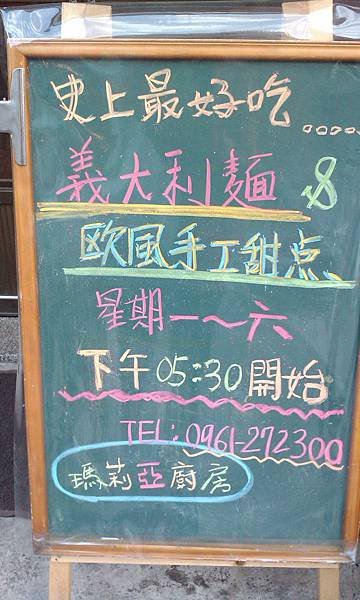 史上最好吃....
義大利麵 &
欧風手工甜点
星期一～六
下午05:30開始
TEL:0961-272300
瑪莉亞廚房